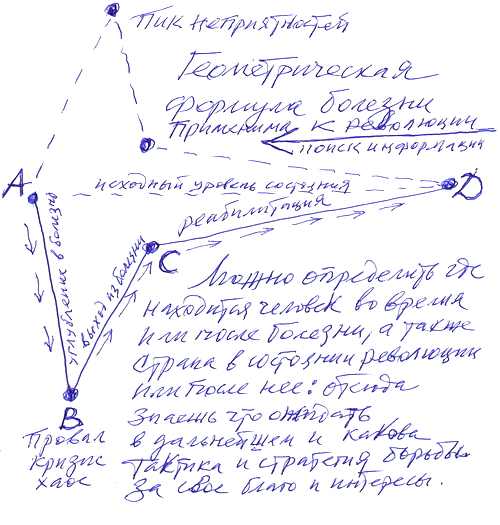 Пик неприятностей
Геометрическая
формула болезни
Применима к революции
поиск информация
A
исходный уровень состояния
D
реабилитация
углубление в болезнь
выход из болезни
C
B
Провал
кризис
хаос
Можно определить где
находится человек во время
или после болезни, а также
страна в состоянии революции
или после нее: отсюда
знаешь что ожидать
в дальнейшем и какова
тактика и стратегия борьбы
за свое благо и интересы.